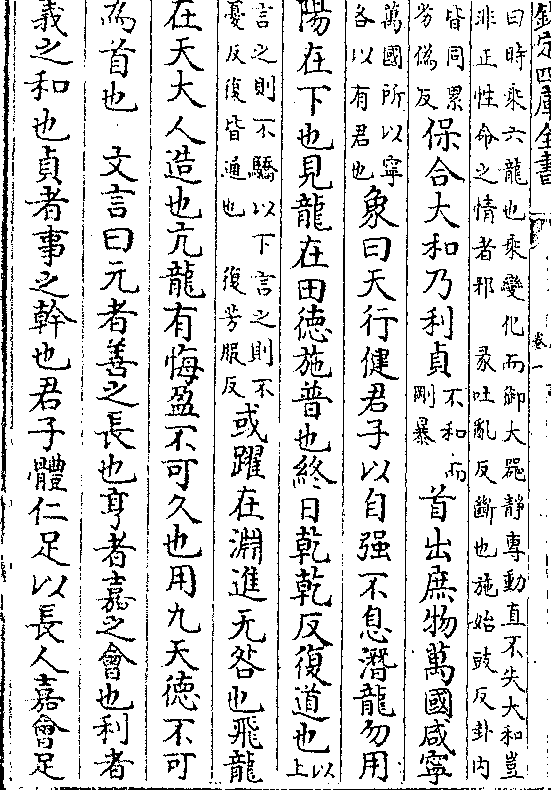 欽定四庫全書 卷一
曰時乘六龍也乘變化而御大噐静專動直不失大和豈
非正性命之情者邪 彖吐亂反斷也施始豉反卦内
皆同累劣偽反保合大和乃利貞不和而剛暴首出庶物萬國咸寧
萬國所以寧各以有君也象曰天行健君子以自强不息潛龍勿用
陽在下也見龍在田德施普也終日乾乾反復道也以上
言之則不驕以下言之則不憂反復皆通也 復芳服反或躍在淵進无咎也飛龍
在天大人造也亢龍有悔盈不可久也用九天德不可
為首也 文言曰元者善之長也亨者嘉之會也利者
義之和也貞者事之幹也君子體仁足以長人嘉會足